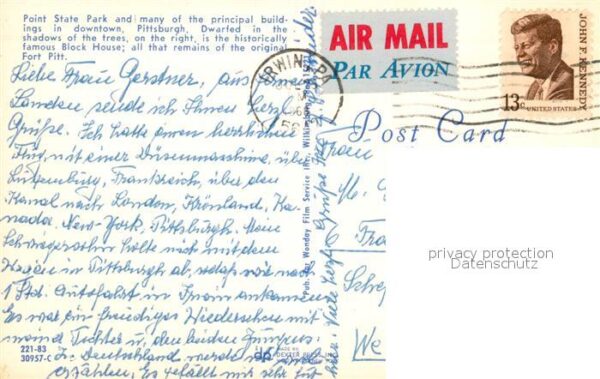 Point State Park and many of the principal build-
ings in downtown, Pittsburgh, Dwarfed in the
shadows of the trees, on the right, is the historically
famous Block House; all that remains of the original
Fort Pitt.
Liebe Frau Gerstner, aus
sende ich Ihnen herzl.
Grüße. Ich hatte einen herrlichen
Flug mit einer Düsenmaschine, über
Luxemburg, Frankreich, über den
Kanal nach London, Grönland, Ka-
nada, New-York, Pittsburgh. Mein
Schwiegersohn holte mich mit dem
Wagen in Pittsburgh ab, sodaß wir nach
1 Std. Autofahrt in Irwin ankamen
Es war ein freudiges Wiedersehen mit
meiner Tochter u. den beiden Jungens.
In Deutschland werde
erzählen. Es gefällt mir sehr gut
hier. Viele herzl. Grüße
221-83
30957-C
Pub. for Wonday Film Service Inc., Wilkinsburg
DEXTER PRESS
AIR MAIL
PAR AVION
IRWIN, PA
JOHN F. KENNEDY
13c
UNITED STATES
Post Card
Frau
We
privacy protection
Datenschutz